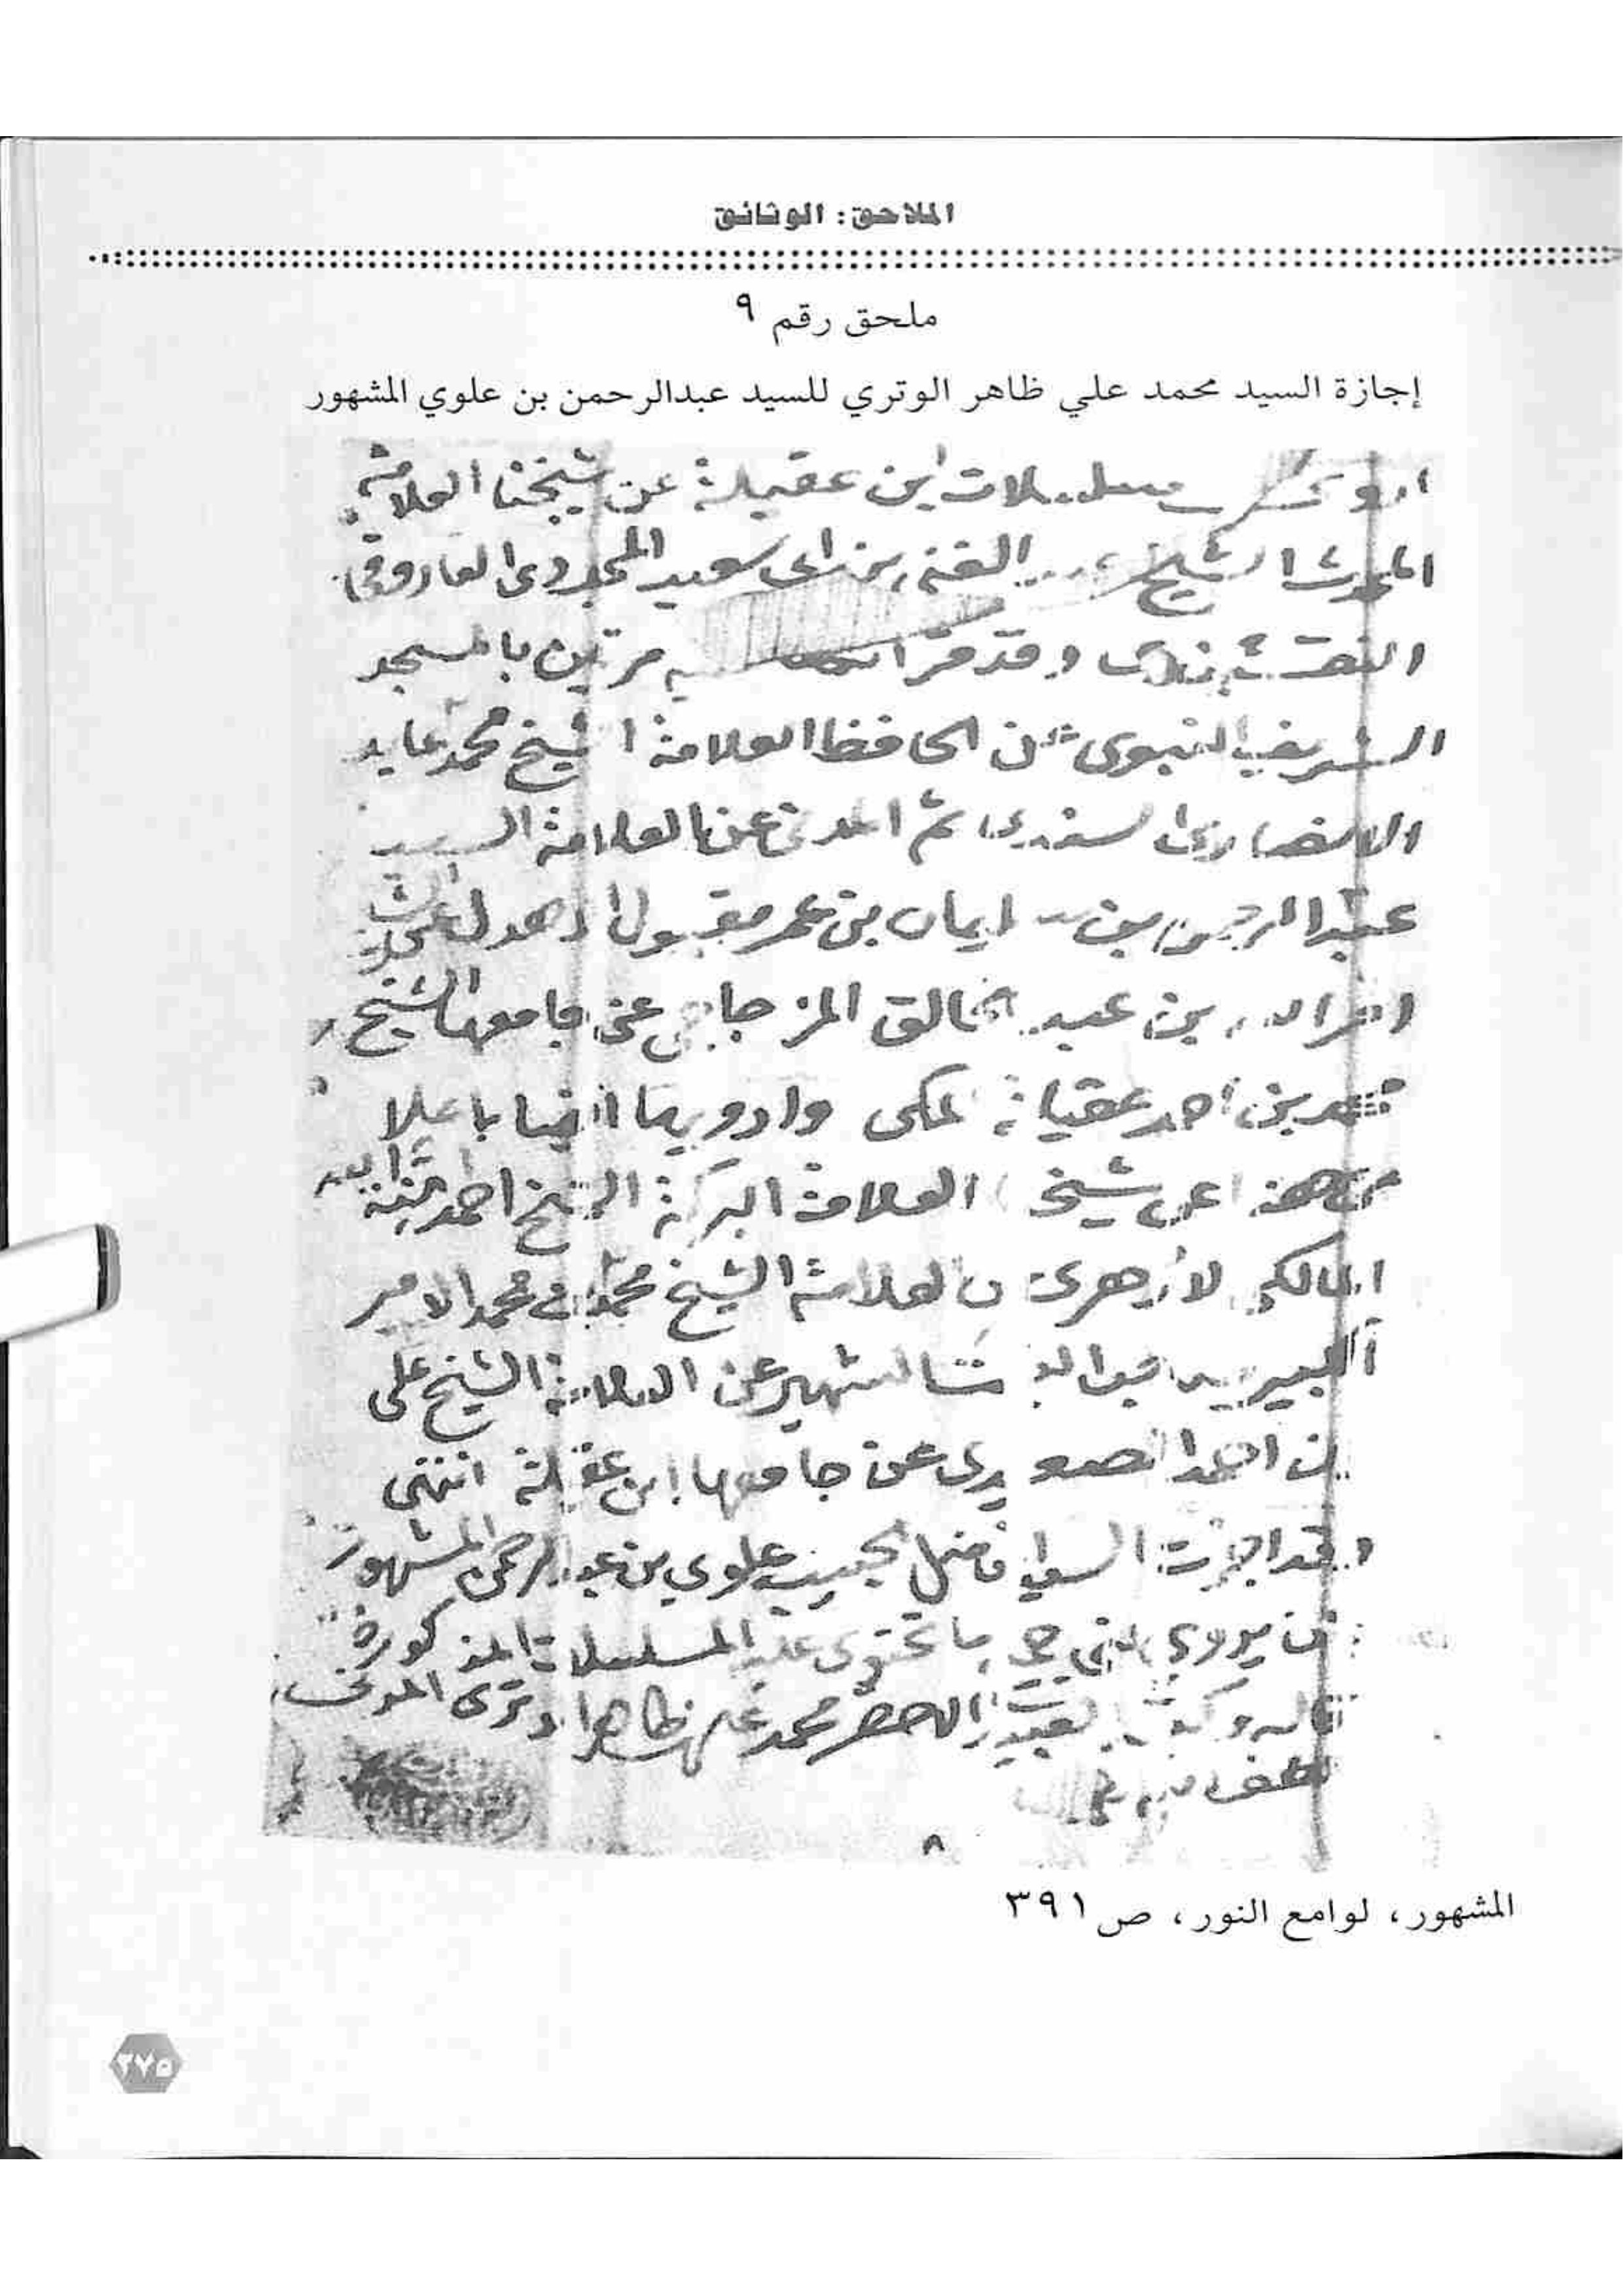 الملاحق: الوثائق
ملحق رقم ٩
إجازة السيد محمد علي ظاهر الوتري للسيد عبدالرحمن بن علوي المشهور
اروى مسلسلات ابن عقيلة عن شيخنا العلامة
المحدث الشيخ الغنى بن ابى سعيد المجددى الفاروقى
النقشبندى وقد مرتين بالمسجد
الشريف النبوى عن الحافظ العلامة الشيخ محمد عابد
الانصارى السندى ثم المدنى عن العلامة السيد
عبد الرحمن بن سليمان بن عمر مقبول الاهدل عن
بن عبد الخالق المزجاجى عن جامعها الشيخ
محمد بن احمد عقيلة المكى وارويها ايضا باعلا
من هذا عن شيخى العلامة البركة الشيخ احمد منة الله
المالكى الازهرى عن العلامة الشيخ محمد بن محمد الامير
الكبير الشهير عن العلامة الشيخ على
بن احمد الصعيدى عن جامعها ابن عقيلة انتهى
وقد اجزت السيد الفاضل الحبيب علوي بن عبد الرحمن المشهور
ان يروي عنى جميع ما تحتوى عليه المسلسلات المذكورة
قاله وكتبه العبد الاحقر محمد على ظاهر الوترى المدنى
لطف الله به
٨
المشهور، لوامع النور، ص ٣٩١
٢٧٥